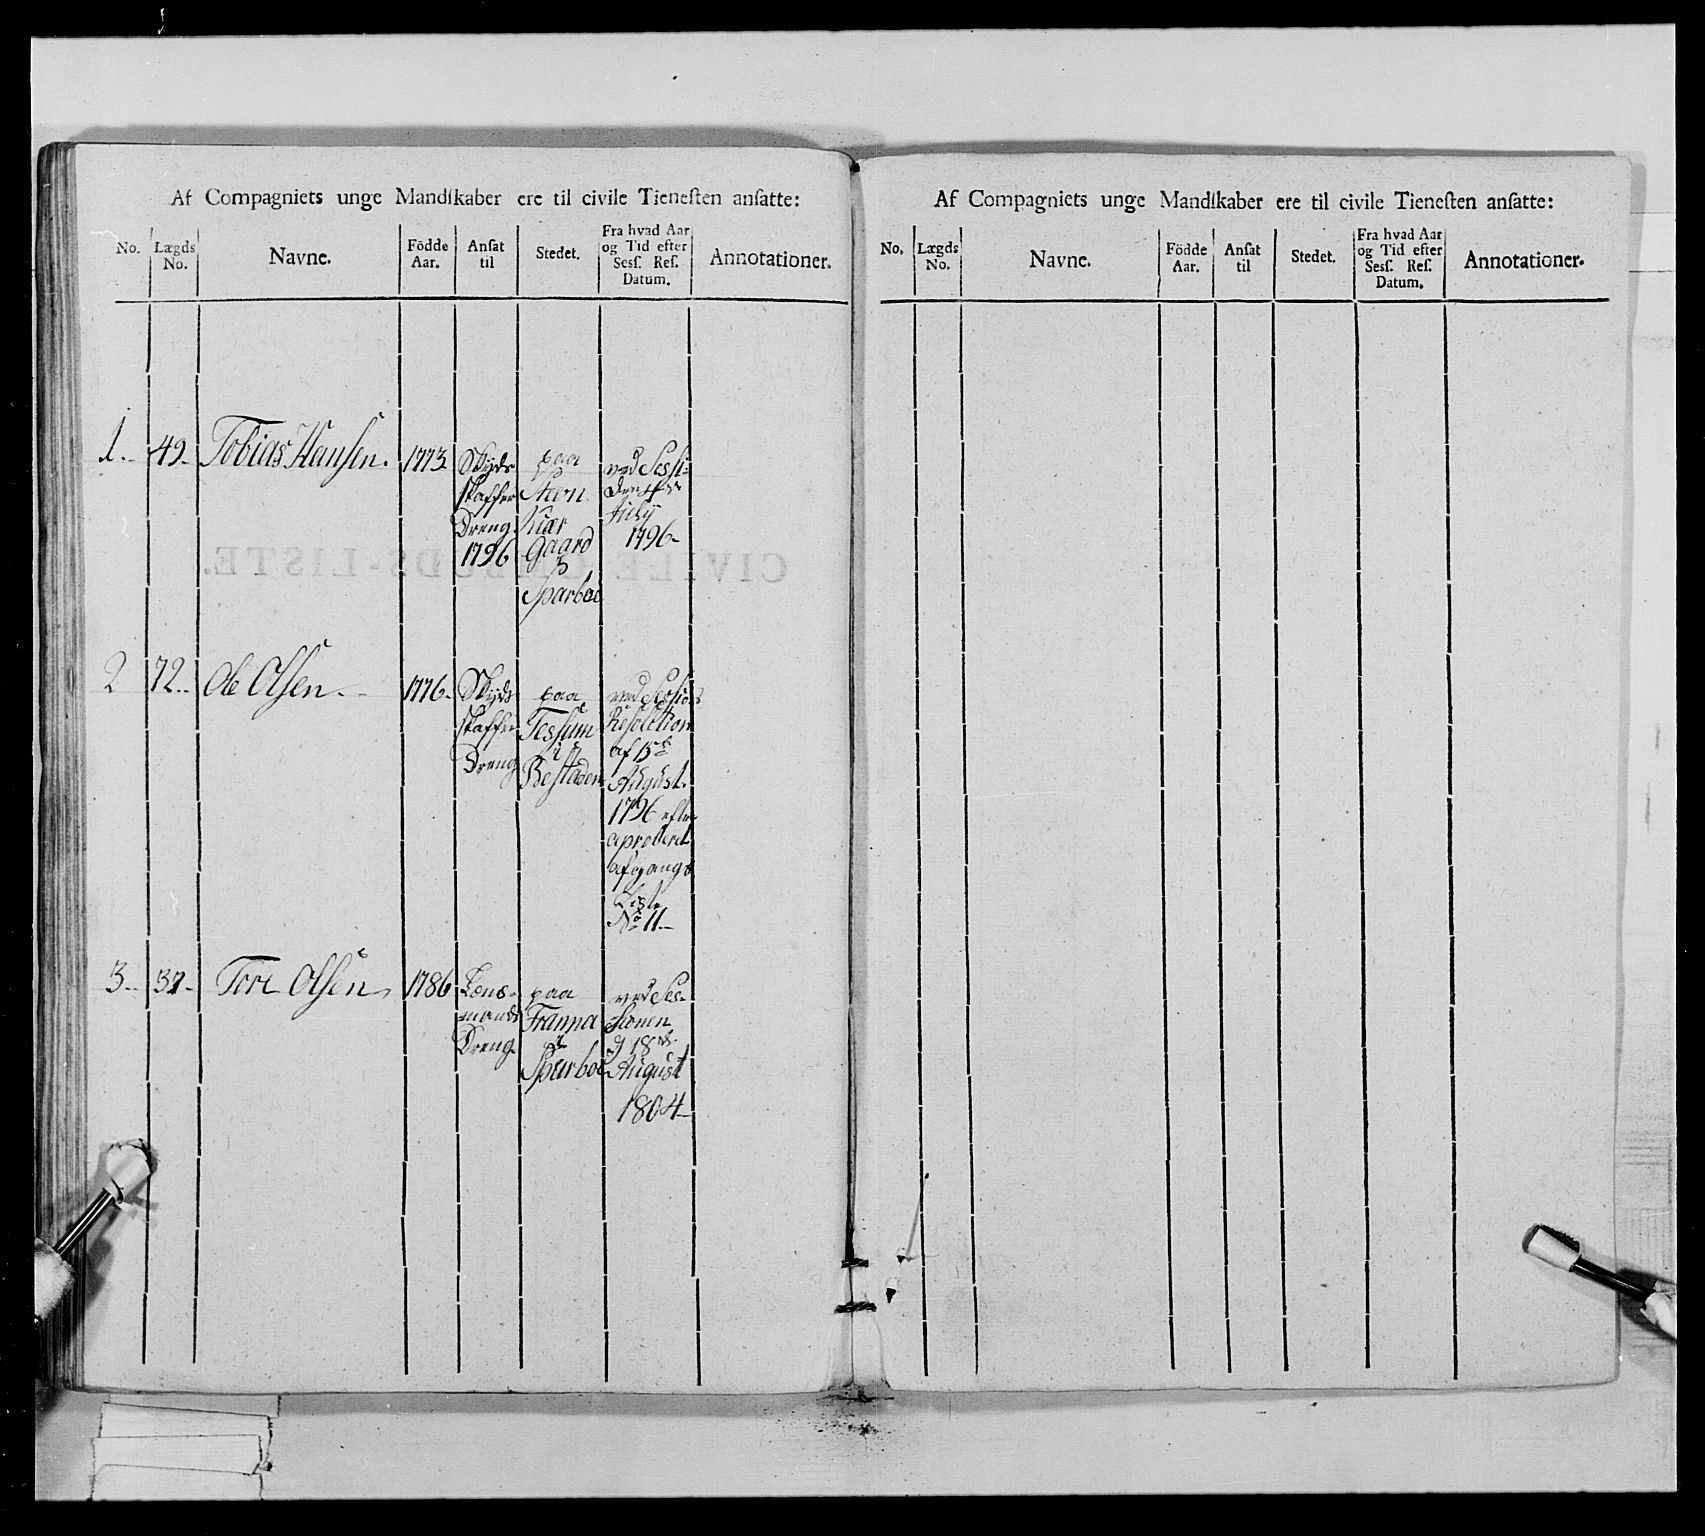 Af Compagniets unge Mandſkaber ere til civile Tieneſten anſatte:
No. Lægds No. Navne. Födde Aar. Anſat til Stedet. Fra hvad Aar og Tid efter Sesſ. Reſ. Datum. Annotationer.
1. 49. Tobias Hansen. 1773
Skyds
skaffer
Dreng
1796
paa
Steen
Kiær
Gaard
i
Sparboe
ved Sessi:
July
1796
2 72. Ole Olsen. 1776.
Skyds
skaffer
Dreng
paa
Tessum
i
Bestaden
ved Sessions
Resolution
af 13de
August
1796 efter
aproberet
afgangs
Liste
No 11
3. 37. Tore Olsen 1786
Lens-
mands
Dreng.
paa
Franna
i
Sparboe
ved Ses-
sionen
18de
August
1804
CIVILE OMBUDS-LISTE.
Af Compagniets unge Mandſkaber ere til civile Tieneſten anſatte:
No. Lægds No. Navne. Födde Aar. Anſat til Stedet. Fra hvad Aar og Tid efter Sesſ. Reſ. Datum. Annotationer.